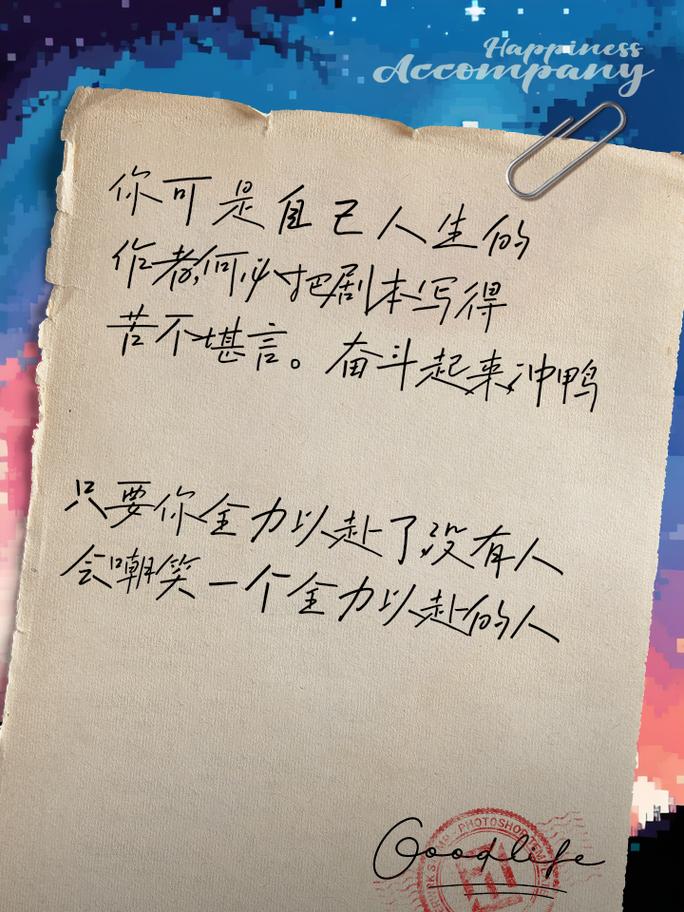 Happiness
Accompany
你可是自己人生的
作者,何必把剧本写得
苦不堪言。奋斗起来冲鸭
只要你全力以赴了,没有人
会嘲笑一个全力以赴的人
PHOTOSHOP
Goodlife